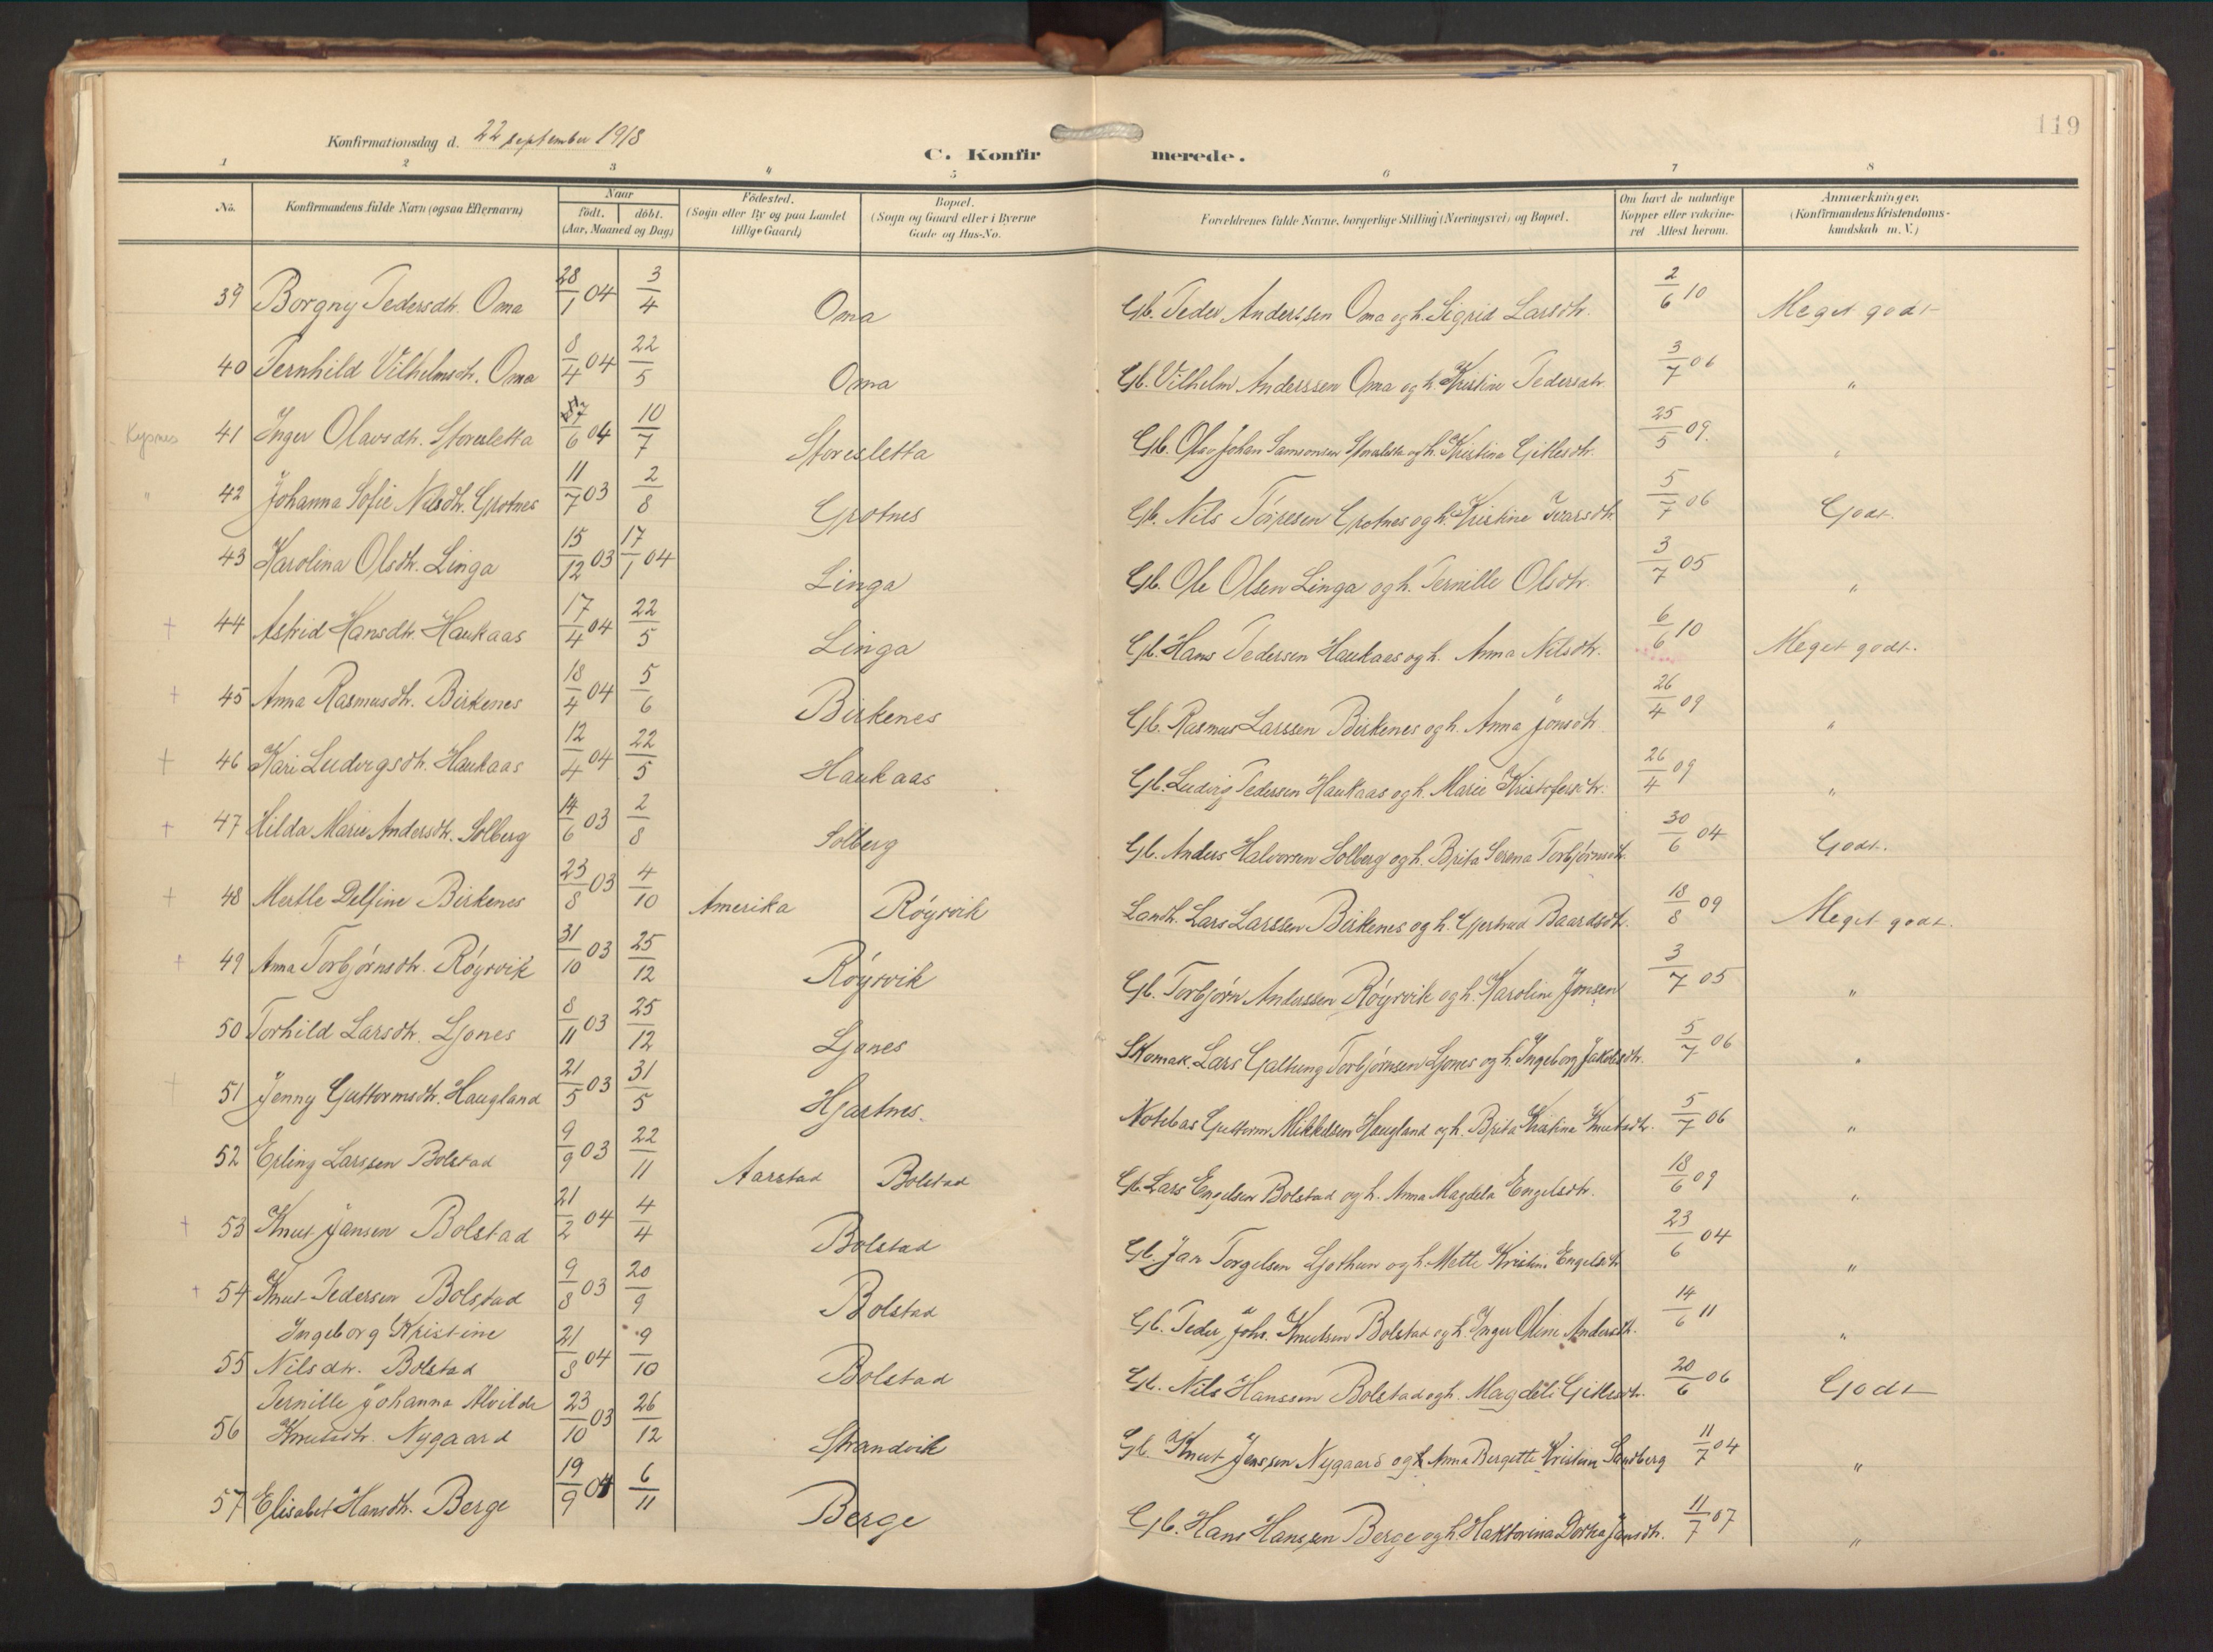 119
Konfirmationsdag d. 22 september 1918
C. Konfirmerede.
1 2 3 4 5 6 7 8
No. | Konfirmandens fulde Navn (ogsaa Efternavn) | Naar født. døbt. (Aar, Maaned og Dag) | Fødested. (Sogn eller By og paa Landet tillige Gaard) | Bopæl. (Sogn og Gaard eller i Byerne Gade og Hus-No. | Forældrenes fulde Navne, borgerlige Stilling (Næringsvei) og Bopæl. | Om havt de naturlige Kopper eller vakcineret Attest herom. | Anmærkninger. (Konfirmandens Kristendomskundskab m. V.)
39 Borgny Pedersdtr. Oma 28/1 04 3/4 Oma Gb. Peder Anderssen Oma og h. Sigrid Larsdtr. 2/6 10 Meget godt
40 Pernhild Vilhelmsdtr. Oma 8/4 04 22/5 Oma Gb. Vilhelm Anderssen Oma og h. Kristine Pedersdtr. 3/7 06 "
Kysnes 41 Inger Olavsdtr. Storesletta /6 04 10/7 Storesletta Gb. Olav Johan Samsonsen Storesletta og h. Kristina Gitlesdtr. 25/5 09. "
" 42 Johanna Sofie Nilsdtr. Grotnes 11/7 03 2/8 Grotnes Gb. Nils Tørresen Grotnes og h. Kristine Ivarsdtr. 5/7 06 Godt.
43 Karolina Olsdtr. Linga 15/12 03 17/1 04 Linga Gb. Ole Olsen Linga og h. Pernille Olsdtr. 3/7 05 "
+ 44 Astrid Hansdtr. Haukaas 17/4 04 22/5 Linga Gb. Hans Pedersen Haukaas og h. Anna Nilsdtr. 6/6 10 Meget godt.
+ 45 Anna Rasmusdtr. Birkenes 18/4 04 5/6 Birkenes Gb. Rasmus Larssen Birkenes og h. Anna Jonsdtr. 26/4 09 "
+ 46 Kari Ludvigsdtr. Haukaas 12/4 04 22/5 Haukaas Gb. Ludvig Pedersen Haukaas og h. Marie Kristofersdtr. 26/4 09 "
+ 47 Hilda Marie Andersdtr. Solberg 14/6 03 2/8 Solberg Gb. Anders Halvorsen Solberg og h. Brita Serena Torbjørnsdtr. 30/6 04 Godt.
+ 48 Mertle Delfine Birkenes 23/8 03 4/10 Amerika Røyrvik Landh. Lars Larssen Birkenes og h. Gjertrud Baardsdtr. 18/8 09 Meget godt.
+ 49 Anna Torbjørnsdtr. Røyrvik 31/10 03 25/12 Røyrvik Gb. Torbjørn Anderssen Røyrvik og h. Karoline Jonsen 3/7 05 "
50 Torhild Larsdtr. Ljones 8/11 03 25/12 Ljones Skomak. Lars Galtung Torbjørnsen Ljones og h. Ingeborg Jakobsdtr. 5/7 06 "
+ 51 Jenny Guttormsdtr. Haugland 21/5 03 31/5 Hjartnes. Notebas Guttorm Mikkelsen Haugland og h. Brita Kristina Knutsdtr. 5/7 06 "
52 Erling Larssen Bolstad 9/9 03 22/11 Aarstad Bolstad Gb. Lars Engelsen Bolstad og h. Anna Magdela Engelsdtr. 18/6 09 "
+ 53 Knut Jansen Bolstad 21/2 04 4/4 Bolstad Gb. Jan Torgelsen Ljothun og h. Mette Kristine Engelsdtr 23/6 04 "
+ 54 Knut Pedersen Bolstad 9/8 03 20/9 Bolstad Gb. Peder Johs. Knutsen Bolstad og h. Inger Oline Andersdtr. 14/6 11 "
Ingeborg Kristine
55 Nilsdtr. Bolstad 21/8 04 9/10 Bolstad Gb. Nils Hanssen Bolstad og h. Magdeli Gitlesdtr. 20/6 06 Godt
Pernille Johanna Alvilde
56 Knutsdtr. Nygaard 23/10 03 26/12 Strandvik Gb. Knut Jenssen Nygaard og h. Anna Bergette Kristine Sandberg 11/7 04 "
57 Elisabet Hansdtr. Berge 19/9 04 6/11 Berge Gb. Hans Hanssen Berge og h. Haktorina Dorthea Jansdtr. 11/7 07 "